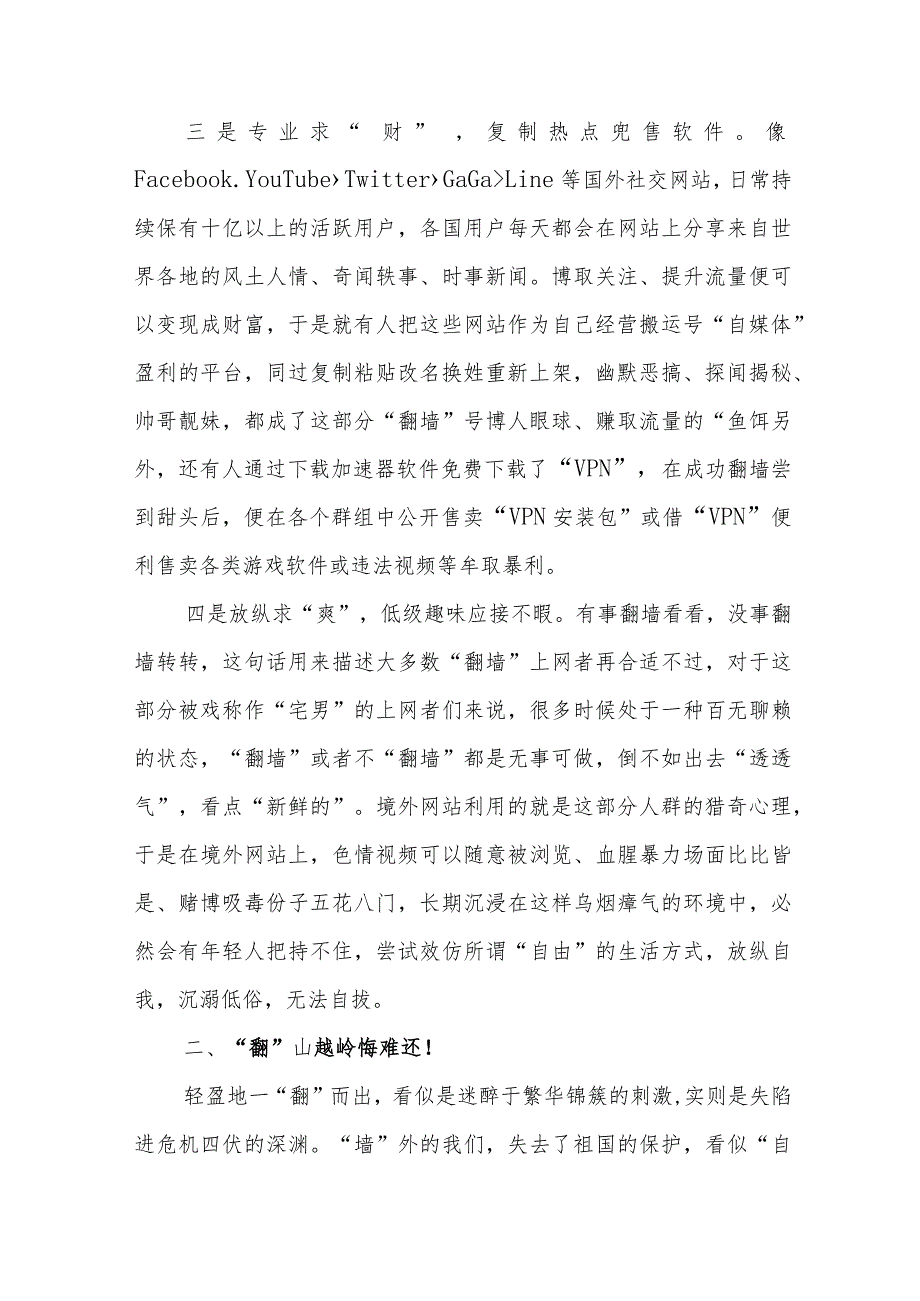 三是专业求“财”，复制热点兜售软件。像
Facebook.YouTube›Twitter›GaGa>Line等国外社交网站，日常持
续保有十亿以上的活跃用户，各国用户每天都会在网站上分享来自世
界各地的风土人情、奇闻轶事、时事新闻。博取关注、提升流量便可
以变现成财富，于是就有人把这些网站作为自己经营搬运号“自媒体”
盈利的平台，同过复制粘贴改名换姓重新上架，幽默恶搞、探闻揭秘、
帅哥靓妹，都成了这部分“翻墙”号博人眼球、赚取流量的“鱼饵另
外，还有人通过下载加速器软件免费下载了“VPN”，在成功翻墙尝
到甜头后，便在各个群组中公开售卖“VPN安装包”或借“VPN”便
利售卖各类游戏软件或违法视频等牟取暴利。
四是放纵求“爽”，低级趣味应接不暇。有事翻墙看看，没事翻
墙转转，这句话用来描述大多数“翻墙”上网者再合适不过，对于这
部分被戏称作“宅男”的上网者们来说，很多时候处于一种百无聊赖
的状态，“翻墙”或者不“翻墙”都是无事可做，倒不如出去“透透
气”，看点“新鲜的”。境外网站利用的就是这部分人群的猎奇心理，
于是在境外网站上，色情视频可以随意被浏览、血腥暴力场面比比皆
是、赌博吸毒份子五花八门，长期沉浸在这样乌烟瘴气的环境中，必
然会有年轻人把持不住，尝试效仿所谓“自由”的生活方式，放纵自
我，沉溺低俗，无法自拔。
二、“翻”山越岭悔难还！
轻盈地一“翻”而出，看似是迷醉于繁华锦簇的刺激,实则是失陷
进危机四伏的深渊。“墙”外的我们，失去了祖国的保护，看似“自